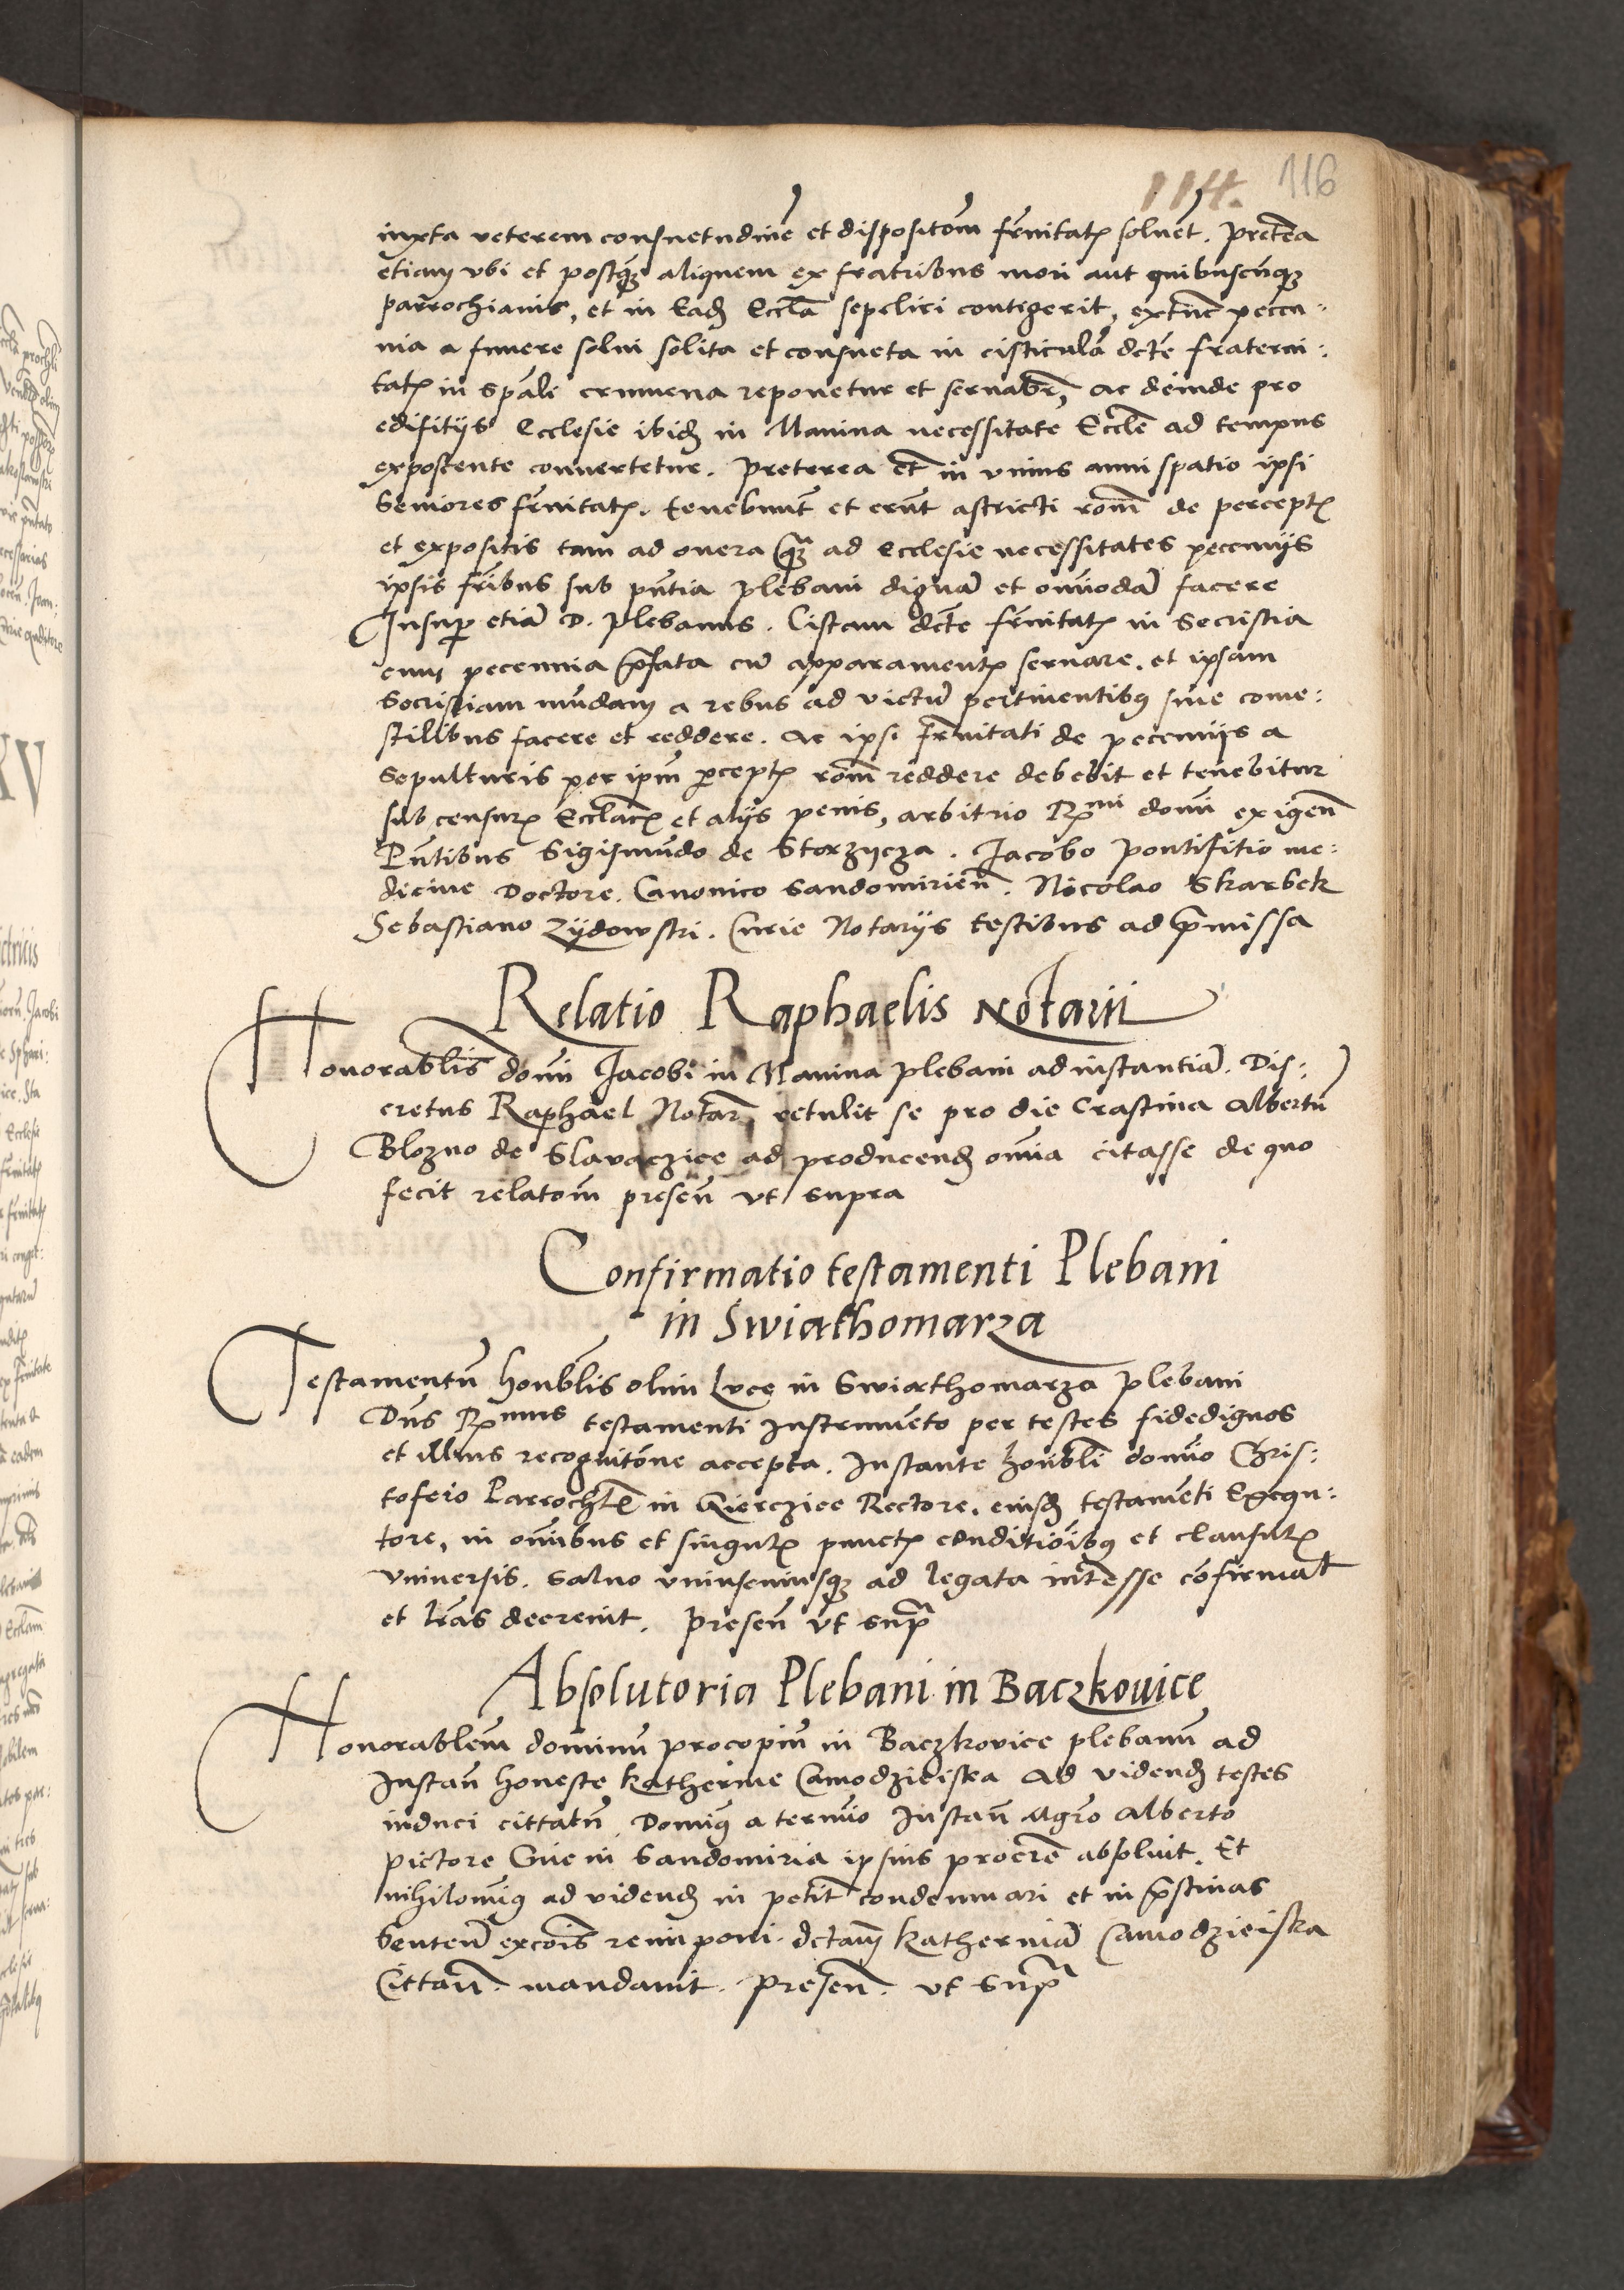 114. 116
iuxta veterem consuetudinē et dispositōm frnitatꝭ soluet. Pretea
etiam vbi et postq̄ȝ aliquem ex fratribus mori aut quibuscūqȝ
parrochianis, et in Eadȝ Eccla sepeliri contigerit, extūc peccu-
nia a funere solui solita et consueta in cisticulā dcte fraterni:
tatꝭ in spāli crumena reponetur et seruabr, ac deinde pro
edifitijs Ecclesie ibidȝ in Manina necessitate Eccle ad tempus
exposcente conuertetur. Preterea et in vnius anni spatio ipsi
Seniores frnitatꝭ. tenebunt et erūt astricti rōm de perceptꝭ
et expositis tam ad onera qȝ ad Ecclesie necessitates peccunijs
ipsis fribus sub pntia plebani dignā et omīodā facere
Insuꝑ etiā D. plebanus. Cistam dcte frnitatꝭ in Secristia
cum peccunia p̄fata cū apparamentꝭ seruare. et ipsam
Secristiam mūdam a rebus ad victū pertinentibꝰ siue come:
stilibus facere et reddere. ac ipsi frnitati de peccunijs a
Sepulturis per ipm ꝑceptꝭ rōm reddere debebit et tenebitur
sub censurꝭ Ecclacꝭ et alijs penis, arbitrio Rꝭmi domi exigen̄
Pntibus Sigismūdo de Storzycza. Jacobo Pontifitio me:
dicine Doctore. Canonico Sandomirien̄. Nicolao Skarbek
Sebastiano Zydowski. Curie Notarijs testibus ad p̄missa
Relatio Raphaelis Notarii
Honorablis domi Jacobi in Manina plebani ad instantiā. Dis:
cretus Raphael Notar retulit se pro die Crastina Albertū
Blozno de Slavaczice ad producendȝ omia citasse de quo
fecit relatōm presen̄ vt supra
Confirmatio testamenti Plebani
in Swiathomarza
Testamentū honblis olim Luce in Swiathomarza plebani
Dns Rꝭmus testamenti Instrumēto per testes fidedignos
et illius recognitōne accepta. Instante honbli domīo Chris:
tofero Parrochle in Gierczice Rectore. eiusdȝ testamēti Exequ:
tore, in omibus et singulꝭ punctꝭ conditioibꝰ et clausulꝭ
vniuersis. Saluo vniuscuiusqȝ ad legata intesse cōfirmat
et lras decreuit. Presen̄ vt supᵃ
Absolutoria Plebani in Baczkovice
Honorablem dominū procopiū in Baczkovice plebanū ad
Instan̄ honeste Katherine Camodzieiska Ad videndȝ testes
induci cittatū. Domīꝰ a termīo Instan̄ Mgro Alberto
pictore Ciue in Sandomiria ipsius procre absoluit. Et
nihilomīꝰ ad videndȝ in petit condemnari et in p̄stinas
Senten̄ excōis reimponi. dctam Katherinā Camodzieiska
Cittan̄. mandauit. Presen̄. vt supᵃ